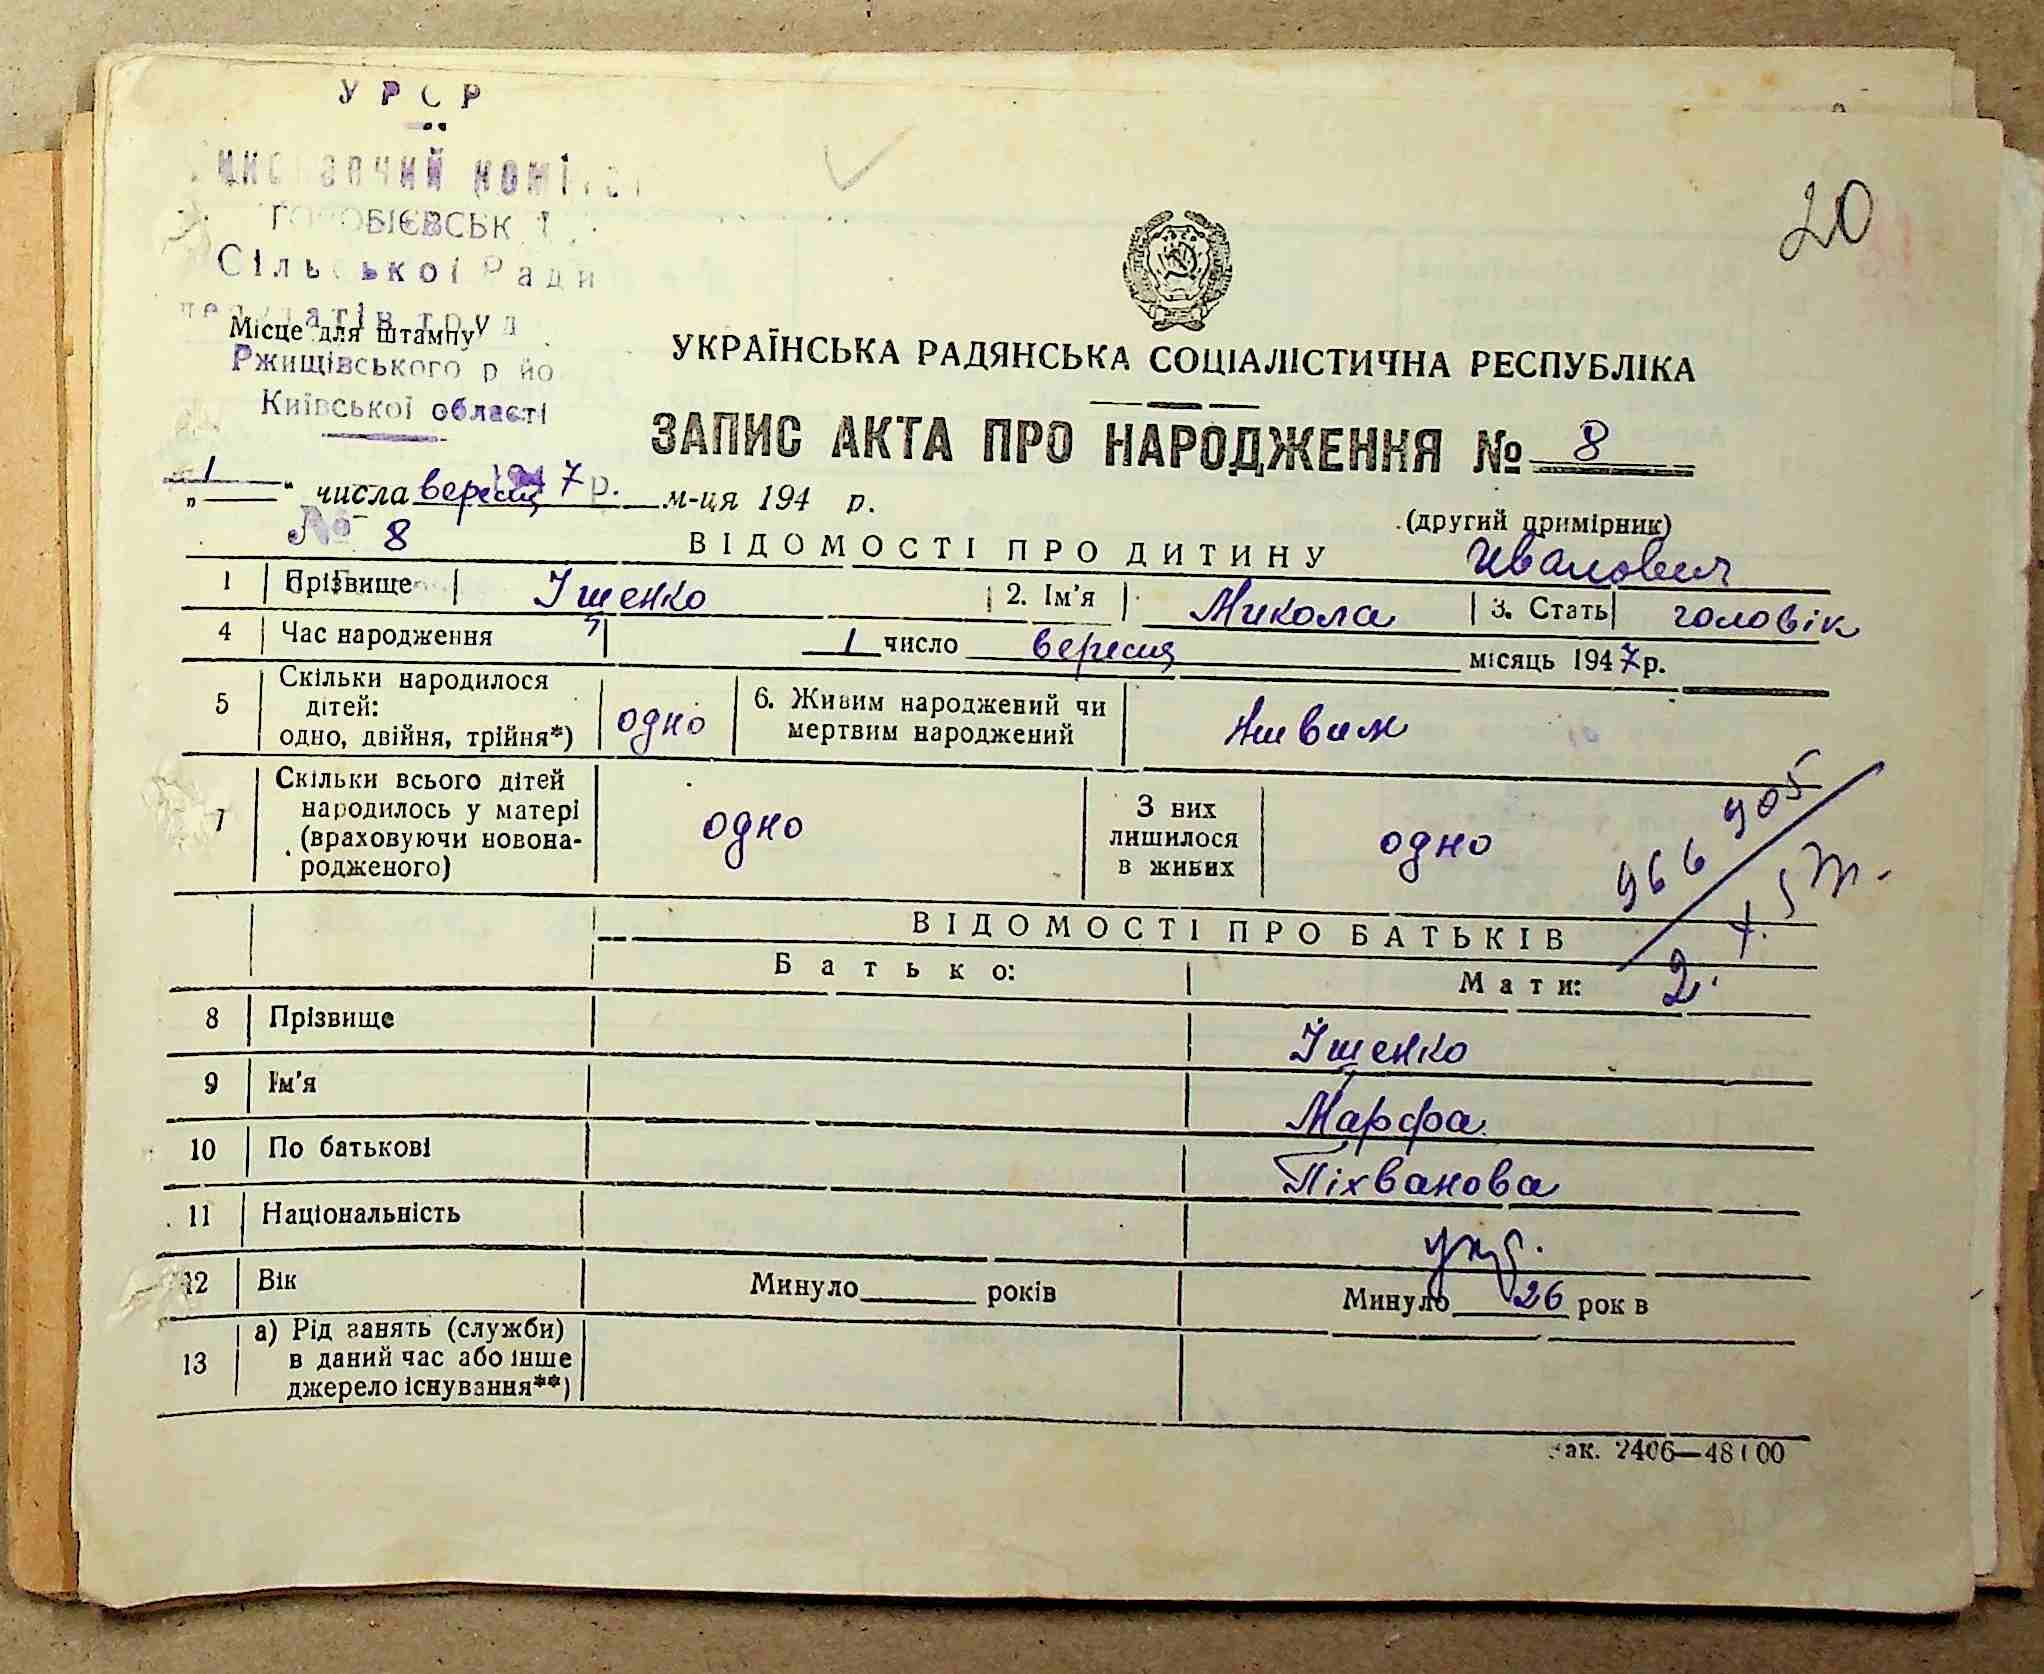 УРСР
комі
Сільської Ради
Місце для штампу
Ржищівського р йо
Київської області
20
УКРАЇНСЬКА РАДЯНСЬКА СОЦІАЛІСТИЧНА РЕСПУБЛІКА
ЗАПИС АКТА ПРО НАРОДЖЕННЯ № 8
„1“ числа вересня 1947 р. м-ця 194 р.
(другий примірник)
№ 8
ВІДОМОСТІ ПРО ДИТИНУ
Иванович
1 Прізвище Іщенко 2. Ім'я Микола 3. Стать чоловік
4 Час народження 1 число вересня місяць 1947 р.
5 Скільки народилося дітей: одно, двійня, трійня*) одно 6. Живим народжений чи мертвим народжений живим
7 Скільки всього дітей народилось у матері (враховуючи новонародженого) одно З них лишилося в живих одно
ВІДОМОСТІ ПРО БАТЬКІВ
Батько: Мати:
8 Прізвище Іщенко
9 Ім'я Марфа
10 По батькові Піхванова
11 Національність укр.
12 Вік Минуло років Минуло 26 рок в
13 а) Рід занять (служби) в даний час або інше джерело існування**)
зак. 2406—48100